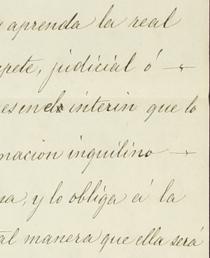 aprenda la real
pete, judicial ó
es en el interin que lo
macion inquilino
na, y lo obliga á la
tal manera que ella será